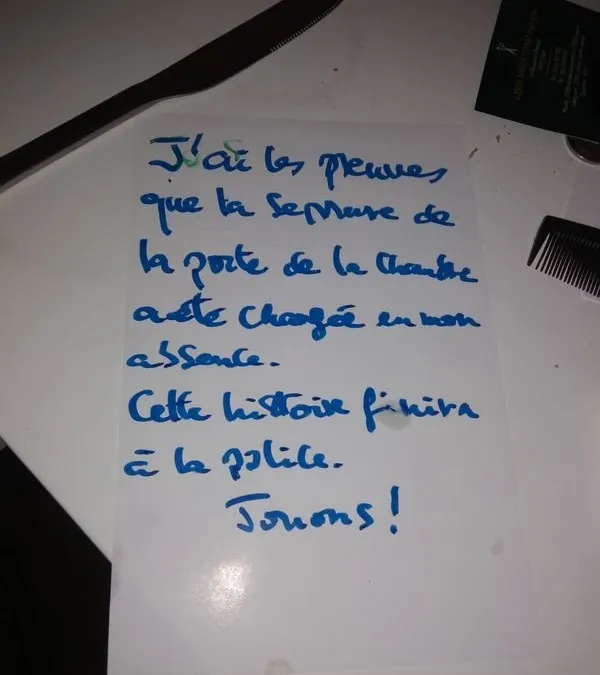 J'ai les preuves
que la serrure de
la porte de la chambre
a été changée en mon
absence.
Cette histoire finira
à la police.
Jouons!